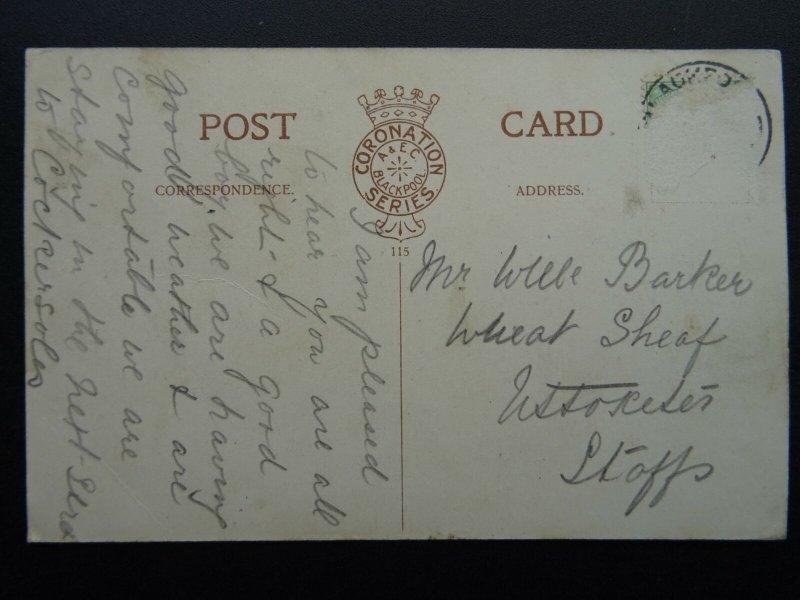 POST CARD
CORRESPONDENCE.
ADDRESS.
CORONATION
A & E C
BLACKPOOL
SERIES
115
BLACKPO
I am pleased
to hear you are all
right & a good
boy. we are having
good weather & are
comfortable we are
staying in the next
to Cockersoles
Mr Wille Barker
Wheat Sheaf
Uttoxeter
Staffs